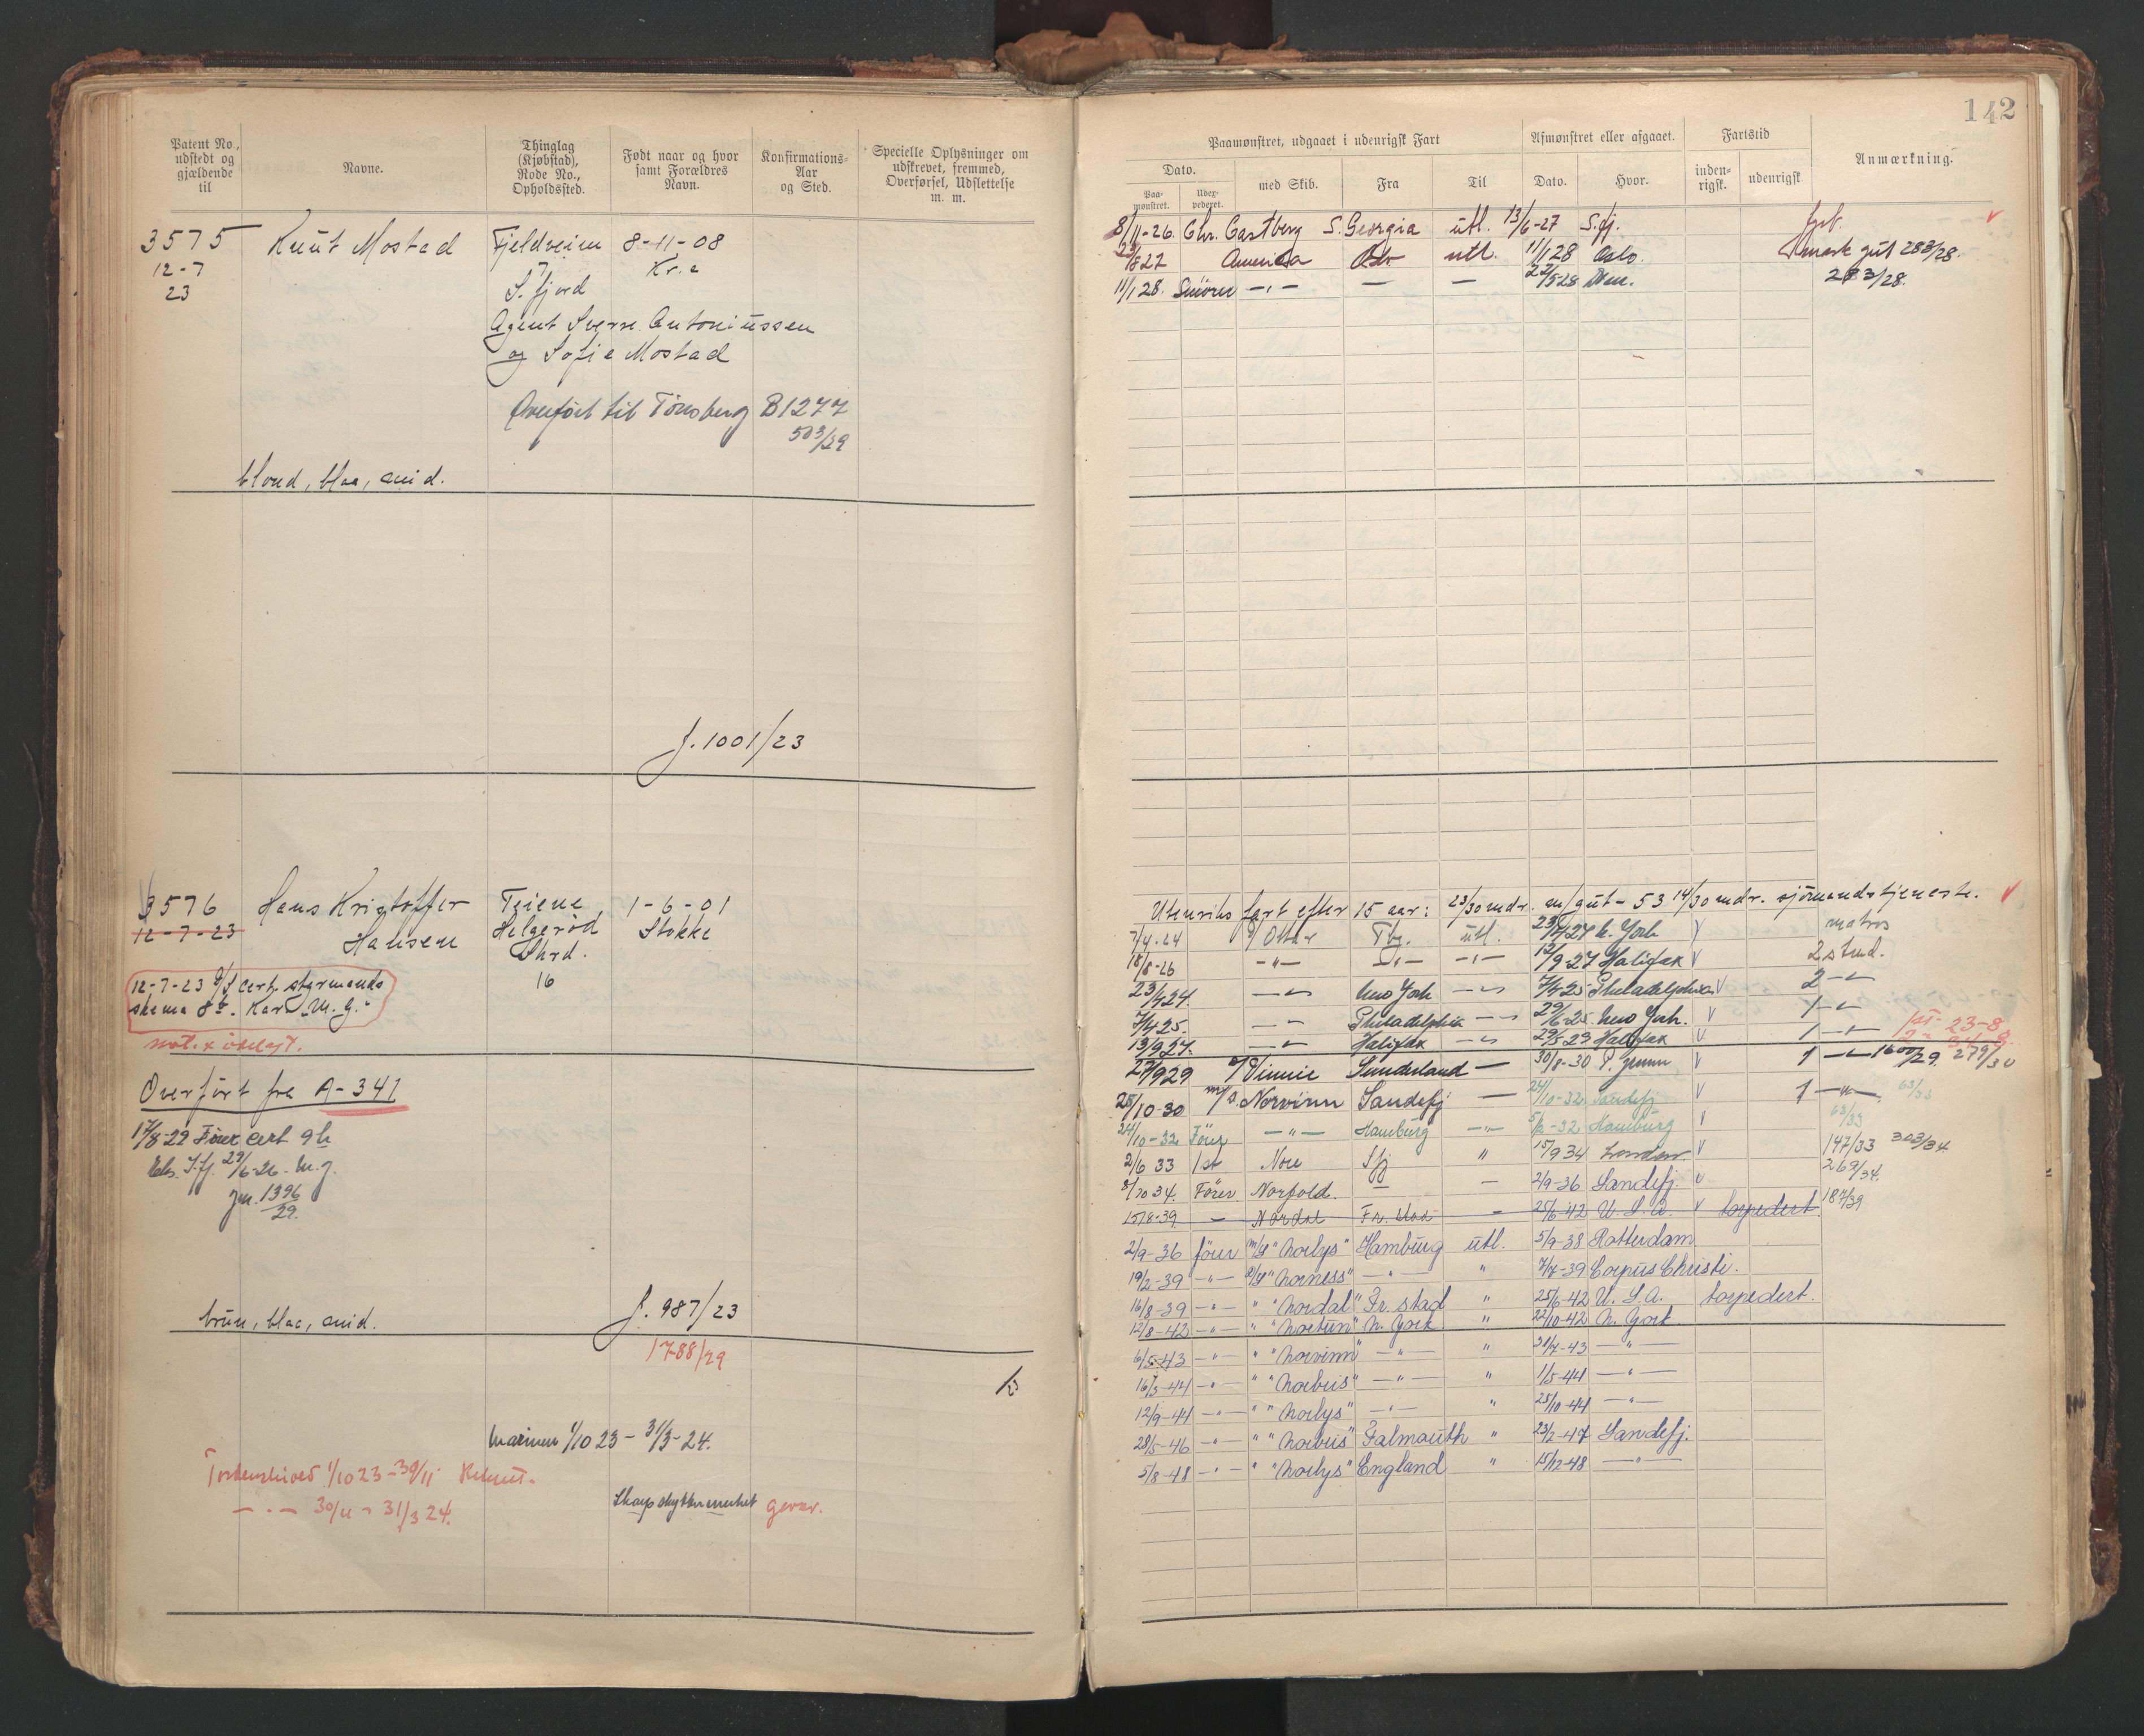 142
Patent No., udstedt og gjældende til
Navne.
Thinglag (Kjøbstad), Rode No., Opholdssted.
Født naar og hvor samt Forældres Navn.
Konfirmations-Aar og Sted.
Specielle Oplysninger om udskrevet, fremmed, Overførsel, Udslettelse m. m.
3575 Knut Mostad Fjeldheim 8-11-08
12-7 S. fjord Kr.a
23
Agent Sverre Antoniussen
og Sofie Mostad
Overført til Tönsberg B1277
503/29
blond, blaa, mid.
J. 1001/23
3576 Hans Kristoffer Teiene 1-6-01
12-7-23 Hansen Helgerød Stokke
Skrd.
16
12-7-23 cert. styrmands
skema
Overført fra A-341
17/8-29 Förer cert 9
S.fj. 29/6-26. M.g.
jn. 1396/29.
brun, blaa, mid.
J. 987/23
1788/29
Marinen 1/10 23 - 31/3-24.
Tordenskiold 1/10 23 - 30/11 Rekrut.
— „ — 30/11 - 31/3 24.
Skarpskyttermerket gevær.
Paamønstret, udgaaet i udenrigsk Fart
Afmønstret eller afgaaet.
Fartstid
Anmærkning.
Dato.
med Skib.
Fra
Til
Dato.
Hvor.
inden-rigsk.
udenrigsk
Paa-mønstret.
Udex-pederet.
8/11-26. Chr. Castberg S. Georgia utl. 13/6-27 S.fj.
America utl. 11/1 28 Oslo. 283/28.
11/1 28. — „ — — — 283/28.
Utenriks fart efter 15 aar: 23/30 mdr. m/gut - 53 14/30 mdr. sjömandstjeneste.
7/4-24 Tbg. utl. N. York matros
18/8-26 — „ — — „ — — „ — 12/9-27 Halifax V 2 stmd.
23/4 24. — „ — New York — „ — 7/4 25 Philadelphia V 2 — „ —
7/4 25. — „ — Philadelphia — „ — 29/6-25. New York. V 1 — „ —
13/9 27. — „ — Halifax — „ — Halifax V 1 — „ —
27/9 29 Sunderland — 30/8-30 1 — „ — 1600/29. 279/30
25/10-30 M/S. Norvinn Sandefj — 24/10-32 Sandefj V 1 — „ —. 63/33
24/10-32 Förer — „ — Hamburg — „ — Hamburg V 63/33
2/6 33 1st Nore Sfj „ 15/9 34 London V 147/33 303/34
8/10 34. Förer Norfold. — — 2/9-36 Sandefj. V 269/34.
15/8-39. — Nordal Fr. stad — 25/6-42 U. S. A. V torpedert. 187/39
2/9-36 förer M/S "Norlys" Hamburg utl. 5/9-38 Rotterdam
19/2-39 — „ — "Norness" — „ — „ 7/7-39 Corpus Christi.
16/8-39 — „ — „ "Nordal" Fr. stad „ 25/6-42 U. S. A. torpedert.
12/8-42 — „ — „ "Nortun" N. York „ 22/10-42 N. York
6/5-43 — „ — „ "Norvinn" — „ — „ — „ —
16/3-44 — „ — „ "Norbris" — „ — „ 1/5-44 — „ —
12/9-44 — „ — „ "Norlys" — „ — „ 25/10-44 — „ —
28/5-46 — „ — „ "Norbris" Falmouth „ 23/2-47 Sandefj.
5/8-48 — „ — „ "Norlys" England „ 15/12-48 — „ —